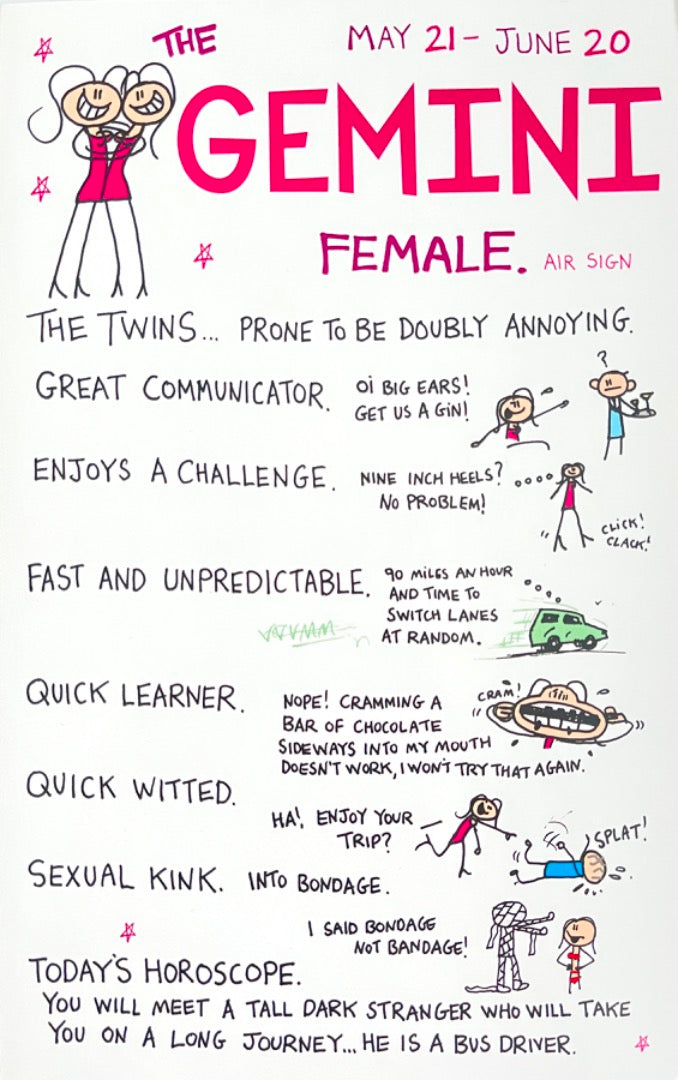 THE
MAY 21 - JUNE 20
GEMINI
FEMALE. AIR SIGN
THE TWINS... PRONE TO BE DOUBLY ANNOYING.
GREAT COMMUNICATOR.
OI BIG EARS!
GET US A GIN!
?
ENJOYS A CHALLENGE.
NINE INCH HEELS?
NO PROBLEM!
CLICK!
CLACK!
FAST AND UNPREDICTABLE.
90 MILES AN HOUR
AND TIME TO
SWITCH LANES
AT RANDOM.
QUICK LEARNER.
NOPE! CRAMMING A
BAR OF CHOCOLATE
SIDEWAYS INTO MY MOUTH
DOESN'T WORK, I WON'T TRY THAT AGAIN.
CRAM!
QUICK WITTED.
HA! ENJOY YOUR
TRIP?
SPLAT!
SEXUAL KINK. INTO BONDAGE.
I SAID BONDAGE
NOT BANDAGE!
TODAY'S HOROSCOPE.
YOU WILL MEET A TALL DARK STRANGER WHO WILL TAKE
YOU ON A LONG JOURNEY... HE IS A BUS DRIVER.